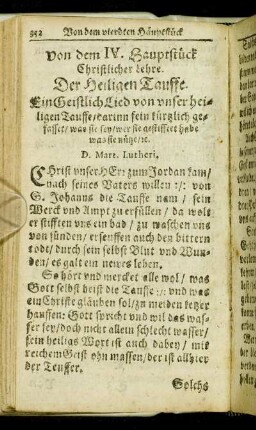 352 Von dem vierdten Häuptstück
Von dem IV. Hauptstück
Christlicher Lehre.
Der Heiligen Tauffe.
Ein Geistlich Lied von unser hei-
ligen Tauffe / darinn fein kürtzlich ge-
fasset / was sie sey / wer sie gestifftet habe
was sie nütze / ꝛc.
D. Mart. Lutheri.
Christ unser HErr zum Jordan kam /
nach seines Vaters willen :/: von
S. Johanns die Tauffe nam / sein
Werck vnd Ampt zu erfüllen / da wolt
er stifften vns ein bad / zu waschen vns
von sünden / ersäuffen auch den bittern
todt / durch sein selbst Blut vnd Wun-
den / es galt ein newes leben.
So hört vnd mercket alle wol / was
Gott selbst heist die Tauffe :/: vnd was
ein Christe gläuben sol / zu meiden ketzer
hauffen: Gott spricht vnd wil das was-
ser sey / doch nicht allein schlecht wasser /
sein heiligs Wort ist auch dabey / mit
reichem Geist ohn massen / der ist allhier
der Teuffer.
Solchs